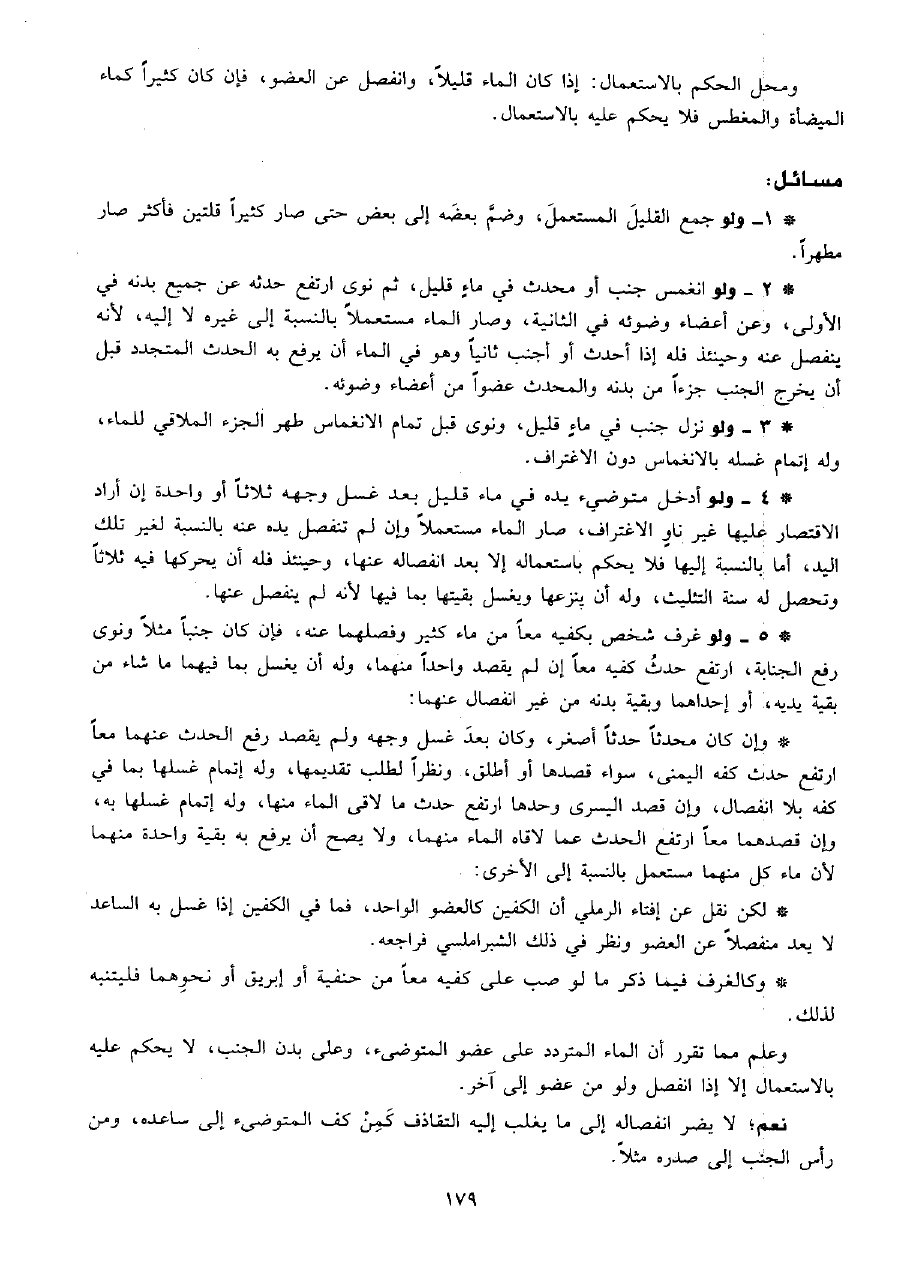 ومحل الحكم بالاستعمال: إذا كان الماء قليلاً، وانفصل عن العضو، فإن كان كثيراً كماء
الميضأة والمغطس فلا يحكم عليه بالاستعمال.
مسائل:
* ١ـ ولو جمع القليلَ المستعملَ، وضمَّ بعضَه إلى بعض حتى صار كثيراً قلتين فأكثر صار
مطهراً.
* ٢ ـ ولو انغمس جنب أو محدث في ماءٍ قليل، ثم نوى ارتفع حدثه عن جميع بدنه في
الأولى، وعن أعضاء وضوئه في الثانية، وصار الماء مستعملاً بالنسبة إلى غيره لا إليه، لأنه
ينفصل عنه وحينئذ فله إذا أحدث أو أجنب ثانياً وهو في الماء أن يرفع به الحدث المتجدد قبل
أن يخرج الجنب جزءاً من بدنه والمحدث عضواً من أعضاء وضوئه.
* ٣ ـ ولو نزل جنب في ماءٍ قليل، ونوى قبل تمام الانغماس طهر الجزء الملاقي للماء،
وله إتمام غسله بالانغماس دون الاغتراف.
* ٤ ـ ولو أدخل متوضيء يده في ماء قليل بعد غسل وجهه ثلاثاً أو واحدة إن أراد
الاقتصار عليها غير ناوٍ الاغتراف، صار الماء مستعملاً وإن لم تنفصل يده عنه بالنسبة لغير تلك
اليد، أما بالنسبة إليها فلا يحكم باستعماله إلا بعد انفصاله عنها، وحينئذ فله أن يحركها فيه ثلاثاً
وتحصل له سنة التثليث، وله أن ينزعها ويغسل بقيتها بما فيها لأنه لم ينفصل عنها.
* ٥ ـ ولو غرف شخص بكفيه معاً من ماء كثير وفصلهما عنه، فإن كان جنباً مثلاً ونوى
رفع الجنابة، ارتفع حدثُ كفيه معاً إن لم يقصد واحداً منهما، وله أن يغسل بما فيهما ما شاء من
بقية يديه، أو إحداهما وبقية بدنه من غير انفصال عنهما:
* وإن كان محدثاً حدثاً أصغر، وكان بعدَ غسل وجهه ولم يقصد رفع الحدث عنهما معاً
ارتفع حدث كفه اليمنى، سواء قصدها أو أطلق، ونظراً لطلب تقديمها، وله إتمام غسلها بما في
كفه بلا انفصال، وإن قصد اليسرى وحدها ارتفع حدث ما لاقى الماء منها، وله إتمام غسلها به،
وإن قصدهما معاً ارتفع الحدث عما لاقاه الماء منهما، ولا يصح أن يرفع به بقية واحدة منهما
لأن ماء كل منهما مستعمل بالنسبة إلى الأخرى:
* لكن نقل عن إفتاء الرملي أن الكفين كالعضو الواحد، فما في الكفين إذا غسل به الساعد
لا يعد منفصلاً عن العضو ونظر في ذلك الشبراملسي فراجعه.
* وكالغرف فيما ذكر ما لو صب على كفيه معاً من حنفية أو إبريق أو نحوهما فليتنبه
لذلك.
وعلم مما تقرر أن الماء المتردد على عضو المتوضيء، وعلى بدن الجنب، لا يحكم عليه
بالاستعمال إلا إذا انفصل ولو من عضو إلى آخر.
نعم؛ لا يضر انفصاله إلى ما يغلب إليه التقاذف كَمِنْ كف المتوضيء إلى ساعده، ومن
رأس الجنب إلى صدره مثلاً.
١٧٩